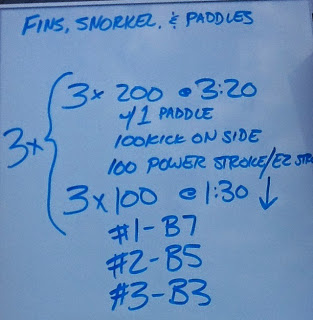 FINS, SNORKEL, & PADDLES
3x
3x 200 @ 3:20
y 1 PADDLE
100 KICK ON SIDE
100 POWER STROKE/EZ STR
3x100 @ 1:30 ↓
#1-B7
#2-B5
#3-B3